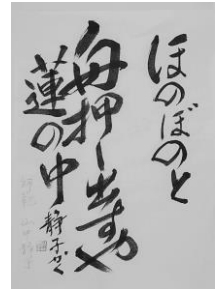 ほのぼのと
舟押し出すや
蓮の中
静子かく